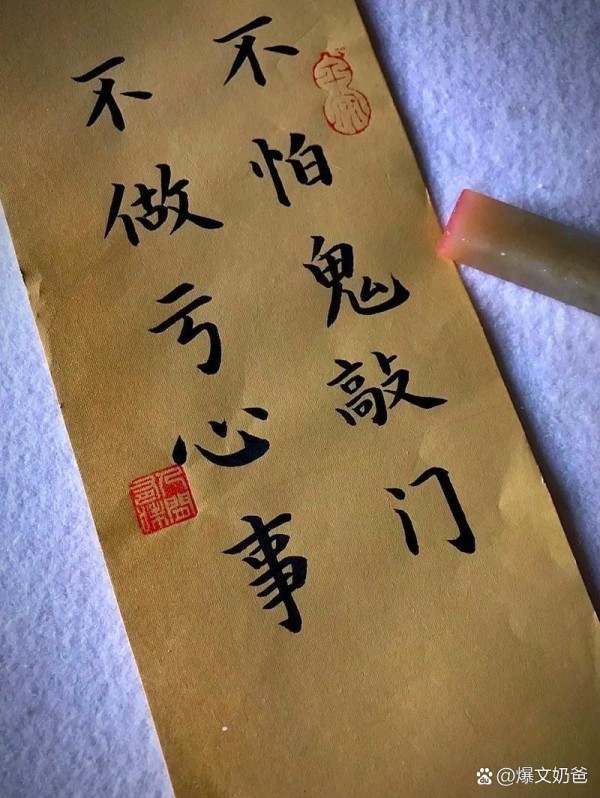 不怕鬼敲门
不做亏心事
平安
@爆文奶爸